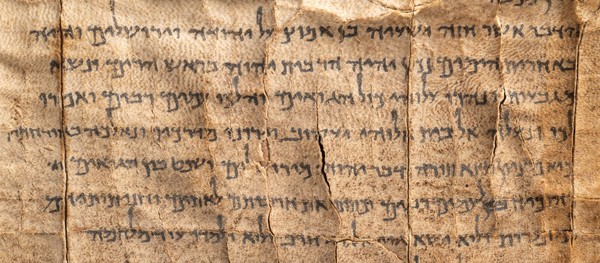 הדבר אשר חזה ישעיה בן אמוץ על יהודה וירושלים והיה
באחרית הימים יהיה הר בית יהוה בראש הרים ונשא
מגבעות ונהרו כול הגואים והלכו עמים רבים ואמרו
לכו ונעלה אל בית אלוהי יעקוב וירונו מדרכיו ונלכה
כיא מציון תצא תורה ודבר יהוה מירושלים ושפט בין הגואים
והוכיח בין לעמים רבים וכתתו את חרבותם לאתים
למזמרות ולוא ישא חרב ולוא ילמדו עוד מלחמה